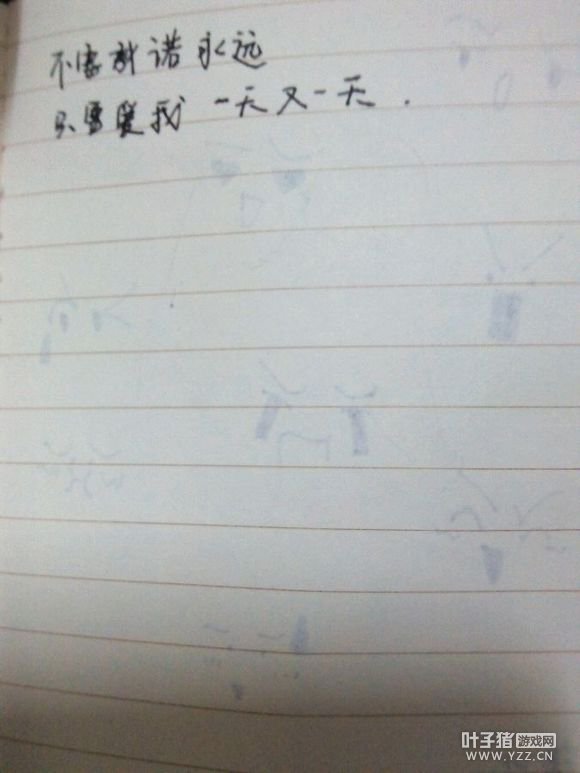 不需許诺永远
只需爱我 一天又一天.
叶子猪 游戏网
WWW.YZZ.CN